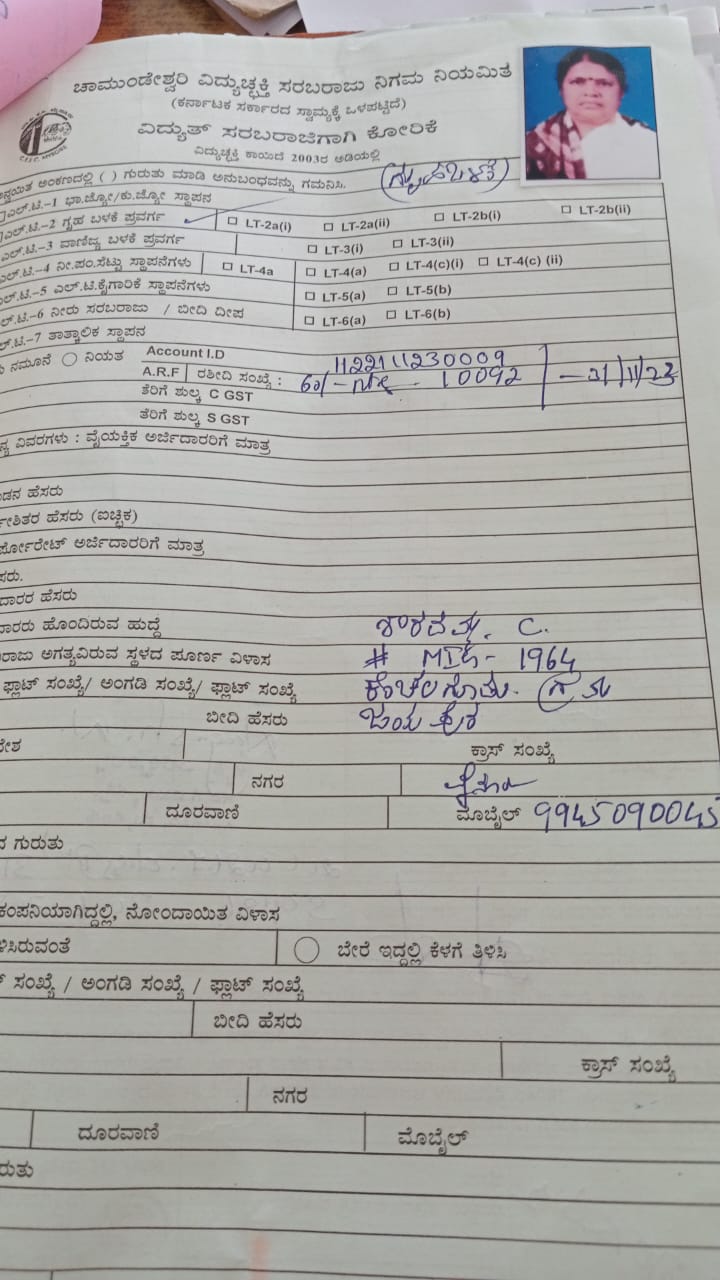 ಚಾಮುಂಡೇಶ್ವರಿ ವಿದ್ಯುಚ್ಛಕ್ತಿ ಸರಬರಾಜು ನಿಗಮ ನಿಯಮಿತ
(ಕರ್ನಾಟಕ ಸರ್ಕಾರದ ಸ್ವಾಮ್ಯಕ್ಕೆ ಒಳಪಟ್ಟಿದೆ)
ವಿದ್ಯುತ್ ಸರಬರಾಜಿಗಾಗಿ ಕೋರಿಕೆ
ವಿದ್ಯುಚ್ಛಕ್ತಿ ಕಾಯಿದೆ 2003ರ ಅಡಿಯಲ್ಲಿ
ಅಂಕಣದಲ್ಲಿ ( ) ಗುರುತು ಮಾಡಿ ಅನುಬಂಧವನ್ನು ಗಮನಿಸಿ.
ಎಲ್.ಟಿ.-1 ಭಾ.ಜ್ಯೋ/ಕು.ಜ್ಯೋ ಸ್ಥಾಪನ
ಎಲ್.ಟಿ.-2 ಗೃಹ ಬಳಕೆ ಪ್ರವರ್ಗ LT-2a(i) LT-2a(ii) LT-2b(i) LT-2b(ii)
ಎಲ್.ಟಿ.-3 ವಾಣಿಜ್ಯ ಬಳಕೆ ಪ್ರವರ್ಗ LT-3(i) LT-3(ii)
ಎಲ್.ಟಿ.-4 ನೀ.ಪಂ.ಸೆಟ್ಟು ಸ್ಥಾಪನೆಗಳು LT-4a LT-4(a) LT-4(c)(i) LT-4(c) (ii)
ಎಲ್.ಟಿ.-5 ಎಲ್.ಟಿ.ಕೈಗಾರಿಕೆ ಸ್ಥಾಪನೆಗಳು LT-5(a) LT-5(b)
ಎಲ್.ಟಿ.-6 ನೀರು ಸರಬರಾಜು / ಬೀದಿ ದೀಪ LT-6(a) LT-6(b)
ಎಲ್.ಟಿ.-7 ತಾತ್ಕಾಲಿಕ ಸ್ಥಾಪನ
ನಮೂನೆ ನಿಯತ Account I.D 112211230009
A.R.F ರಶೀದಿ ಸಂಖ್ಯೆ : 60/- 10092 - 21/11/23
ತೆರಿಗೆ ಶುಲ್ಕ C GST
ತೆರಿಗೆ ಶುಲ್ಕ S GST
ವಿವರಗಳು : ವೈಯಕ್ತಿಕ ಅರ್ಜಿದಾರರಿಗೆ ಮಾತ್ರ
ಹೆಸರು
ಹೆಸರು (ಐಚ್ಛಿಕ)
ರ್ಪೋರೇಟ್ ಅರ್ಜಿದಾರರಿಗೆ ಮಾತ್ರ
ಸರು.
ದಾರರ ಹೆಸರು
ದಾರರು ಹೊಂದಿರುವ ಹುದ್ದೆ C.
ರಾಜು ಅಗತ್ಯವಿರುವ ಸ್ಥಳದ ಪೂರ್ಣ ವಿಳಾಸ # MIG- 1964
ಫ್ಲಾಟ್ ಸಂಖ್ಯೆ/ ಅಂಗಡಿ ಸಂಖ್ಯೆ/ ಫ್ಲಾಟ್ ಸಂಖ್ಯೆ
ಬೀದಿ ಹೆಸರು
ಕ್ರಾಸ್ ಸಂಖ್ಯೆ
ನಗರ
ದೂರವಾಣಿ ಮೊಬೈಲ್ 9945090045
ಗುರುತು
ಕಂಪನಿಯಾಗಿದ್ದಲ್ಲಿ, ನೋಂದಾಯಿತ ವಿಳಾಸ
ಳಿಸಿರುವಂತೆ ಬೇರೆ ಇದ್ದಲ್ಲಿ ಕೆಳಗೆ ತಿಳಿಸಿ
ಸಂಖ್ಯೆ / ಅಂಗಡಿ ಸಂಖ್ಯೆ / ಫ್ಲಾಟ್ ಸಂಖ್ಯೆ
ಬೀದಿ ಹೆಸರು
ಕ್ರಾಸ್ ಸಂಖ್ಯೆ
ನಗರ
ದೂರವಾಣಿ ಮೊಬೈಲ್
ರುತು